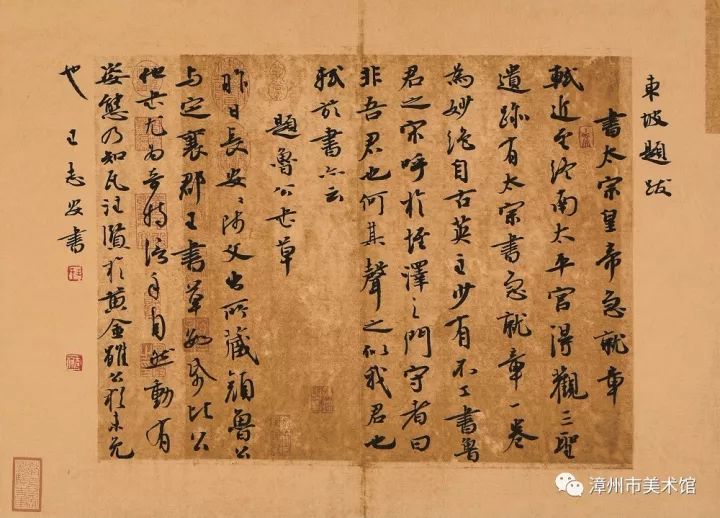 東坡題跋
書太宗皇帝急就章
軾近至終南太平宮得觀三聖
遺跡有太宗書急就章一卷
為妙絕自古英主少有不工書魯
君之宋呼於垤澤之門守者曰
非吾君也何其聲之似我君也
軾於書亦云
題魯公書草
昨日長安〻師文出所藏顏魯公
與定襄郡王書草數紙比公
他書尤為奇特信手自然動有
姿態乃知瓦注賢於黃金雖公猶未免
也 王志安書
漳州市美术馆